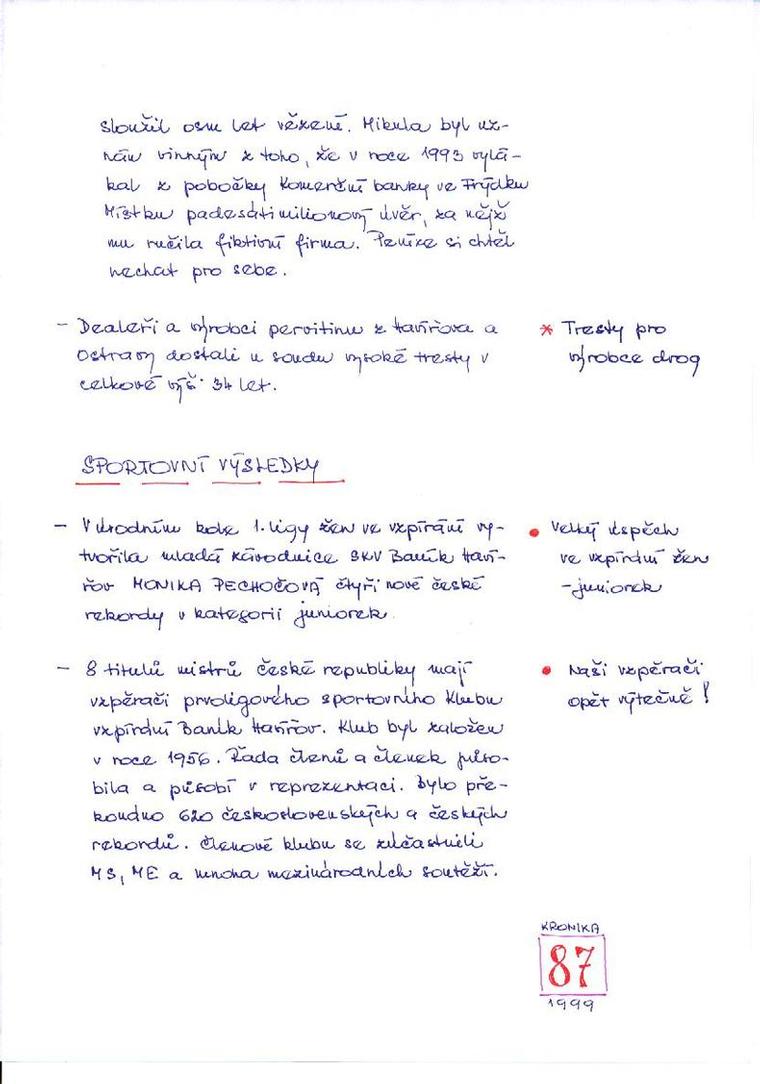 sloužil osm let vězení. Mikula byl uz-
nán vinným z toho, že v roce 1993 vylá-
kal z pobočky Komerční banky ve Frýdku
Místku padesátimilionový úvěr, za nějž
mu ručila fiktivní firma. Peníze si chtěl
nechat pro sebe.
- Dealeři a výrobci pervitinu z Havířova a
Ostravy dostali u soudu vysoké tresty v
celkové výši 34 let.
* Tresty pro
výrobce drog
SPORTOVNÍ VÝSLEDKY
- V úvodním kole 1. ligy žen ve vzpírání vy-
tvořila mladá závodnice SKV Baník Haví-
řov MONIKA PECHOČOVÁ čtyři nové české
rekordy v kategorii juniorek.
• Velký úspěch
ve vzpírání žen
-juniorek
- 8 titulů mistrů české republiky mají
vzpěrači prvoligového sportovního klubu
vzpírání Baník Havířov. Klub byl založen
v roce 1956. Řada členů a členek půso-
bila a působí v reprezentaci. Bylo pře-
konáno 620 československých a českých
rekordů. Členové klubu se zúčastnili
MS, ME a mnoha mezinárodních soutěží.
• Naši vzpěrači
opět výtečně!
KRONIKA
87
1999